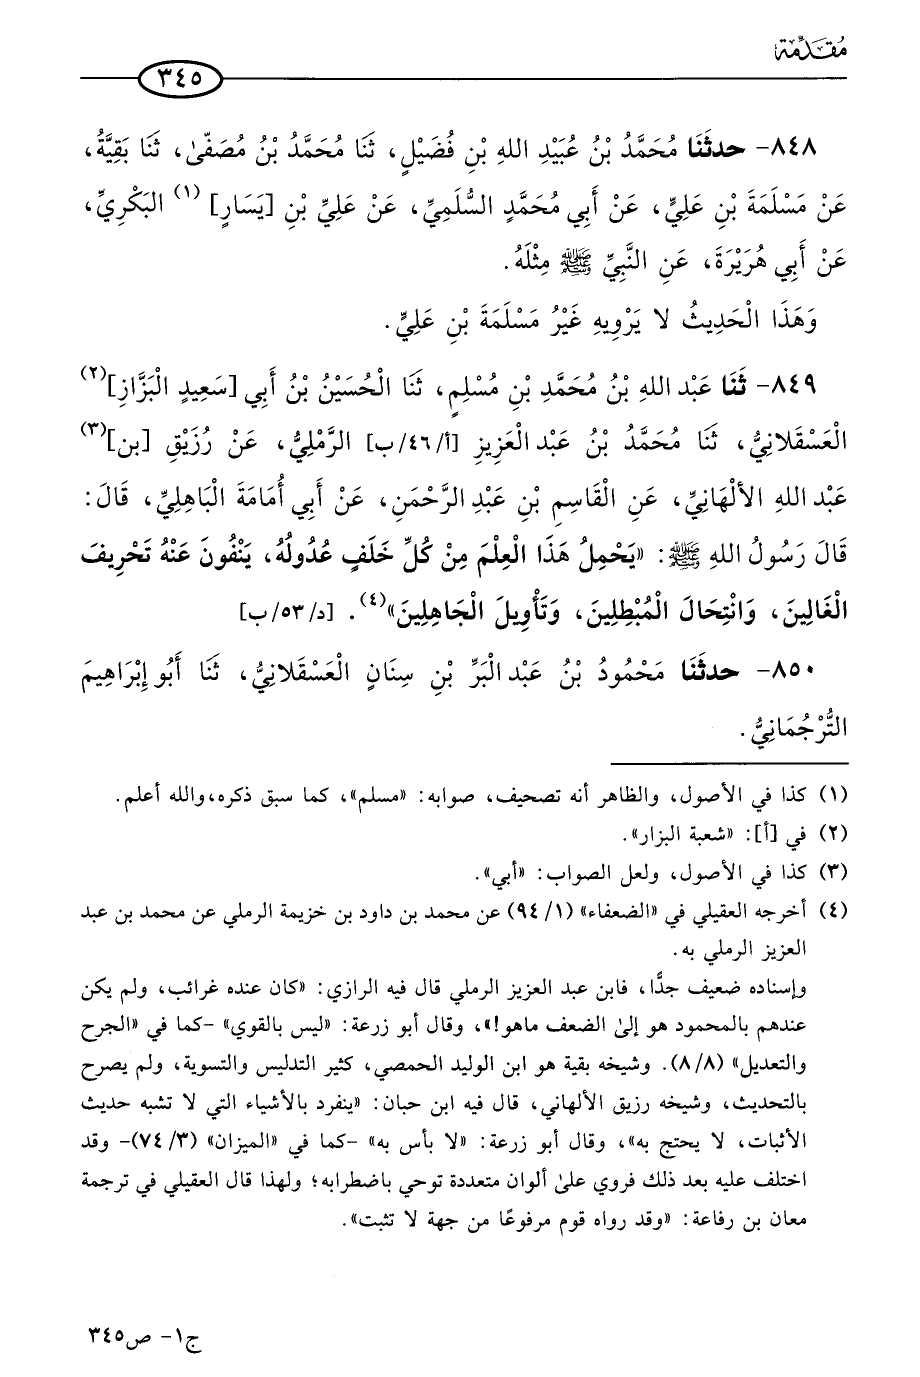 مُقَدِّمَة
٣٤٥
٨٤٨- حدثَنَا مُحَمَّدُ بْنُ عُبَيْدِ اللهِ بْنِ فُضَيْلٍ، ثَنَا مُحَمَّدُ بْنُ مُصَفّىٰ، ثَنَا بَقِيَّةُ،
عَنْ مَسْلَمَةَ بْنِ عَلِيٍّ، عَنْ أَبِي مُحَمَّدٍ السُّلَمِيِّ، عَنْ عَلِيِّ بْنِ [يَسَارٍ] (١) البَكْرِيِّ،
عَنْ أَبِي هُرَيْرَةَ، عَنِ النَّبِيِّ ﷺ مِثْلَهُ.
وَهَذَا الْحَدِيثُ لا يَرْوِيهِ غَيْرُ مَسْلَمَةَ بْنِ عَلِيٍّ.
٨٤٩- ثَنَا عَبْد اللهِ بْنُ مُحَمَّدِ بْنِ مُسْلِمٍ، ثَنَا الْحُسَيْنُ بْنُ أَبِي [سَعِيدٍ الْبَزَّازِ](٢)
الْعَسْقَلانِيُّ، ثَنَا مُحَمَّدُ بْنُ عَبْد الْعَزِيزِ [أ/٤٦/ب] الرَّمْلِيُّ، عَنْ رُزَيْقٍ [بن](٣)
عَبْد اللهِ الأَلْهَانِيِّ، عَنِ الْقَاسِمِ بْنِ عَبْدِ الرَّحْمَنِ، عَنْ أَبِي أُمَامَةَ الْبَاهِلِيِّ، قَالَ:
قَالَ رَسُولُ اللهِ ﷺ: «يَحْمِلُ هَذَا الْعِلْمَ مِنْ كُلِّ خَلَفٍ عُدُولُهُ، يَنْفُونَ عَنْهُ تَحْرِيفَ
الْغَالِينَ، وَانْتِحَالَ الْمُبْطِلِينَ، وَتَأْوِيلَ الْجَاهِلِينَ»(٤). [د/٥٣/ب]
٨٥٠- حدثَنَا مَحْمُودُ بْنُ عَبْد الْبَرِّ بْنِ سِنَانٍ الْعَسْقَلانِيُّ، ثَنَا أَبُو إِبْرَاهِيمَ
التُّرْجُمَانِيُّ.
(١) كذا في الأصول، والظاهر أنه تصحيف، صوابه: «مسلم»، كما سبق ذكره،والله أعلم.
(٢) في [أ]: «شعبة البزار».
(٣) كذا في الأصول، ولعل الصواب: «أبي».
(٤) أخرجه العقيلي في «الضعفاء» (١/ ٩٤) عن محمد بن داود بن خزيمة الرملي عن محمد بن عبد
العزيز الرملي به.
وإسناده ضعيف جدًّا، فابن عبد العزيز الرملي قال فيه الرازي: «كان عنده غرائب، ولم يكن
عندهم بالمحمود هو إلىٰ الضعف ماهو!»، وقال أبو زرعة: «ليس بالقوي» -كما في «الجرح
والتعديل» (٨/ ٨). وشيخه بقية هو ابن الوليد الحمصي، كثير التدليس والتسوية، ولم يصرح
بالتحديث، وشيخه رزيق الألهاني، قال فيه ابن حبان: «ينفرد بالأشياء التي لا تشبه حديث
الأثبات، لا يحتج به»، وقال أبو زرعة: «لا بأس به» -كما في «الميزان» (٣/ ٧٤)- وقد
اختلف عليه بعد ذلك فروي علىٰ ألوان متعددة توحي باضطرابه؛ ولهذا قال العقيلي في ترجمة
معان بن رفاعة: «وقد رواه قوم مرفوعًا من جهة لا تثبت».
ج١- ص٣٤٥